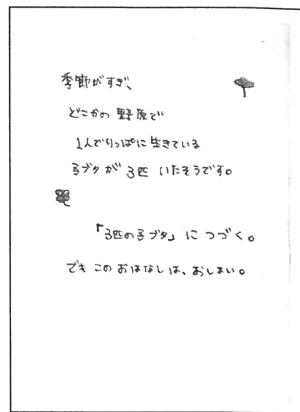 季節がすぎ、
どこかの野原で
1人でりっぱに生きている
子ブタが3匹いたそうです。
「3匹の子ブタ」につづく。
でもこのおはなしは、おしまい。